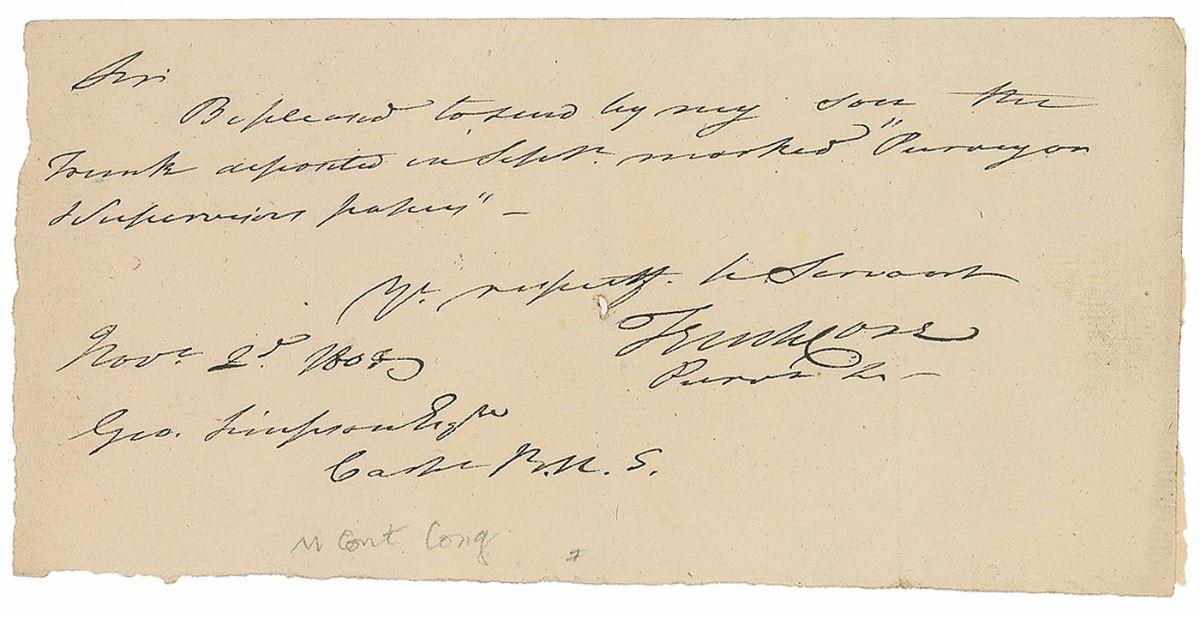 Sir
Be pleased to send by my son the
Trunk deposited in Septr. marked "Purveyor
& Supervisors papers" –
Yr. respectf. h. Servant
Novr. 2d. 1803 Tench Coxe
Purvr
Geo. Simpson Esqre
Cashr B. U. S.
M Cont Cong